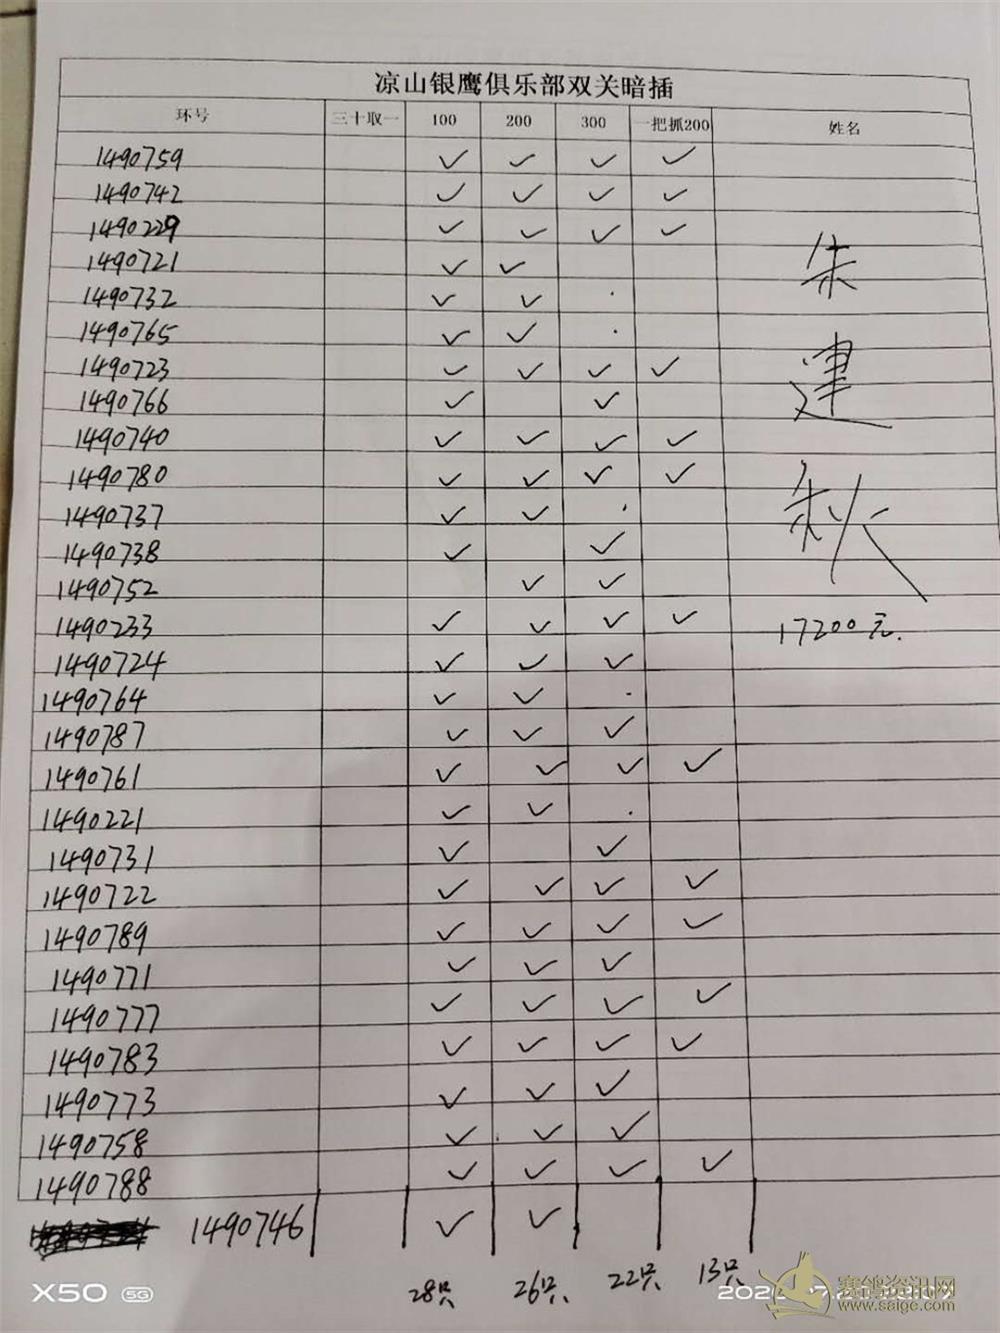 凉山银鹰俱乐部双关暗插
环号 三十取一 100 200 300 一把抓200 姓名
1490759 ✓ ✓ ✓ ✓
1490742 ✓ ✓ ✓ ✓
1490229 ✓ ✓ ✓ ✓
1490721 ✓ ✓
1490732 ✓ ✓
1490765 ✓ ✓
1490723 ✓ ✓ ✓ ✓
1490766 ✓ ✓
1490740 ✓ ✓ ✓ ✓
1490780 ✓ ✓ ✓ ✓
1490737 ✓ ✓
1490738 ✓ ✓
1490752 ✓ ✓
1490233 ✓ ✓ ✓ ✓
1490724 ✓ ✓ ✓
1490764 ✓ ✓
1490787 ✓ ✓ ✓
1490761 ✓ ✓ ✓ ✓
1490221 ✓ ✓
1490731 ✓ ✓
1490722 ✓ ✓ ✓ ✓
1490789 ✓ ✓ ✓ ✓
1490771 ✓ ✓ ✓
1490777 ✓ ✓ ✓ ✓
1490783 ✓ ✓ ✓ ✓
1490773 ✓ ✓ ✓
1490758 ✓ ✓ ✓
1490788 ✓ ✓ ✓ ✓
1490746 ✓ ✓
28只 26只 22只 13只
朱
建
秋
17200元.
X50 5G
赛鸽资讯网
www.saige.com